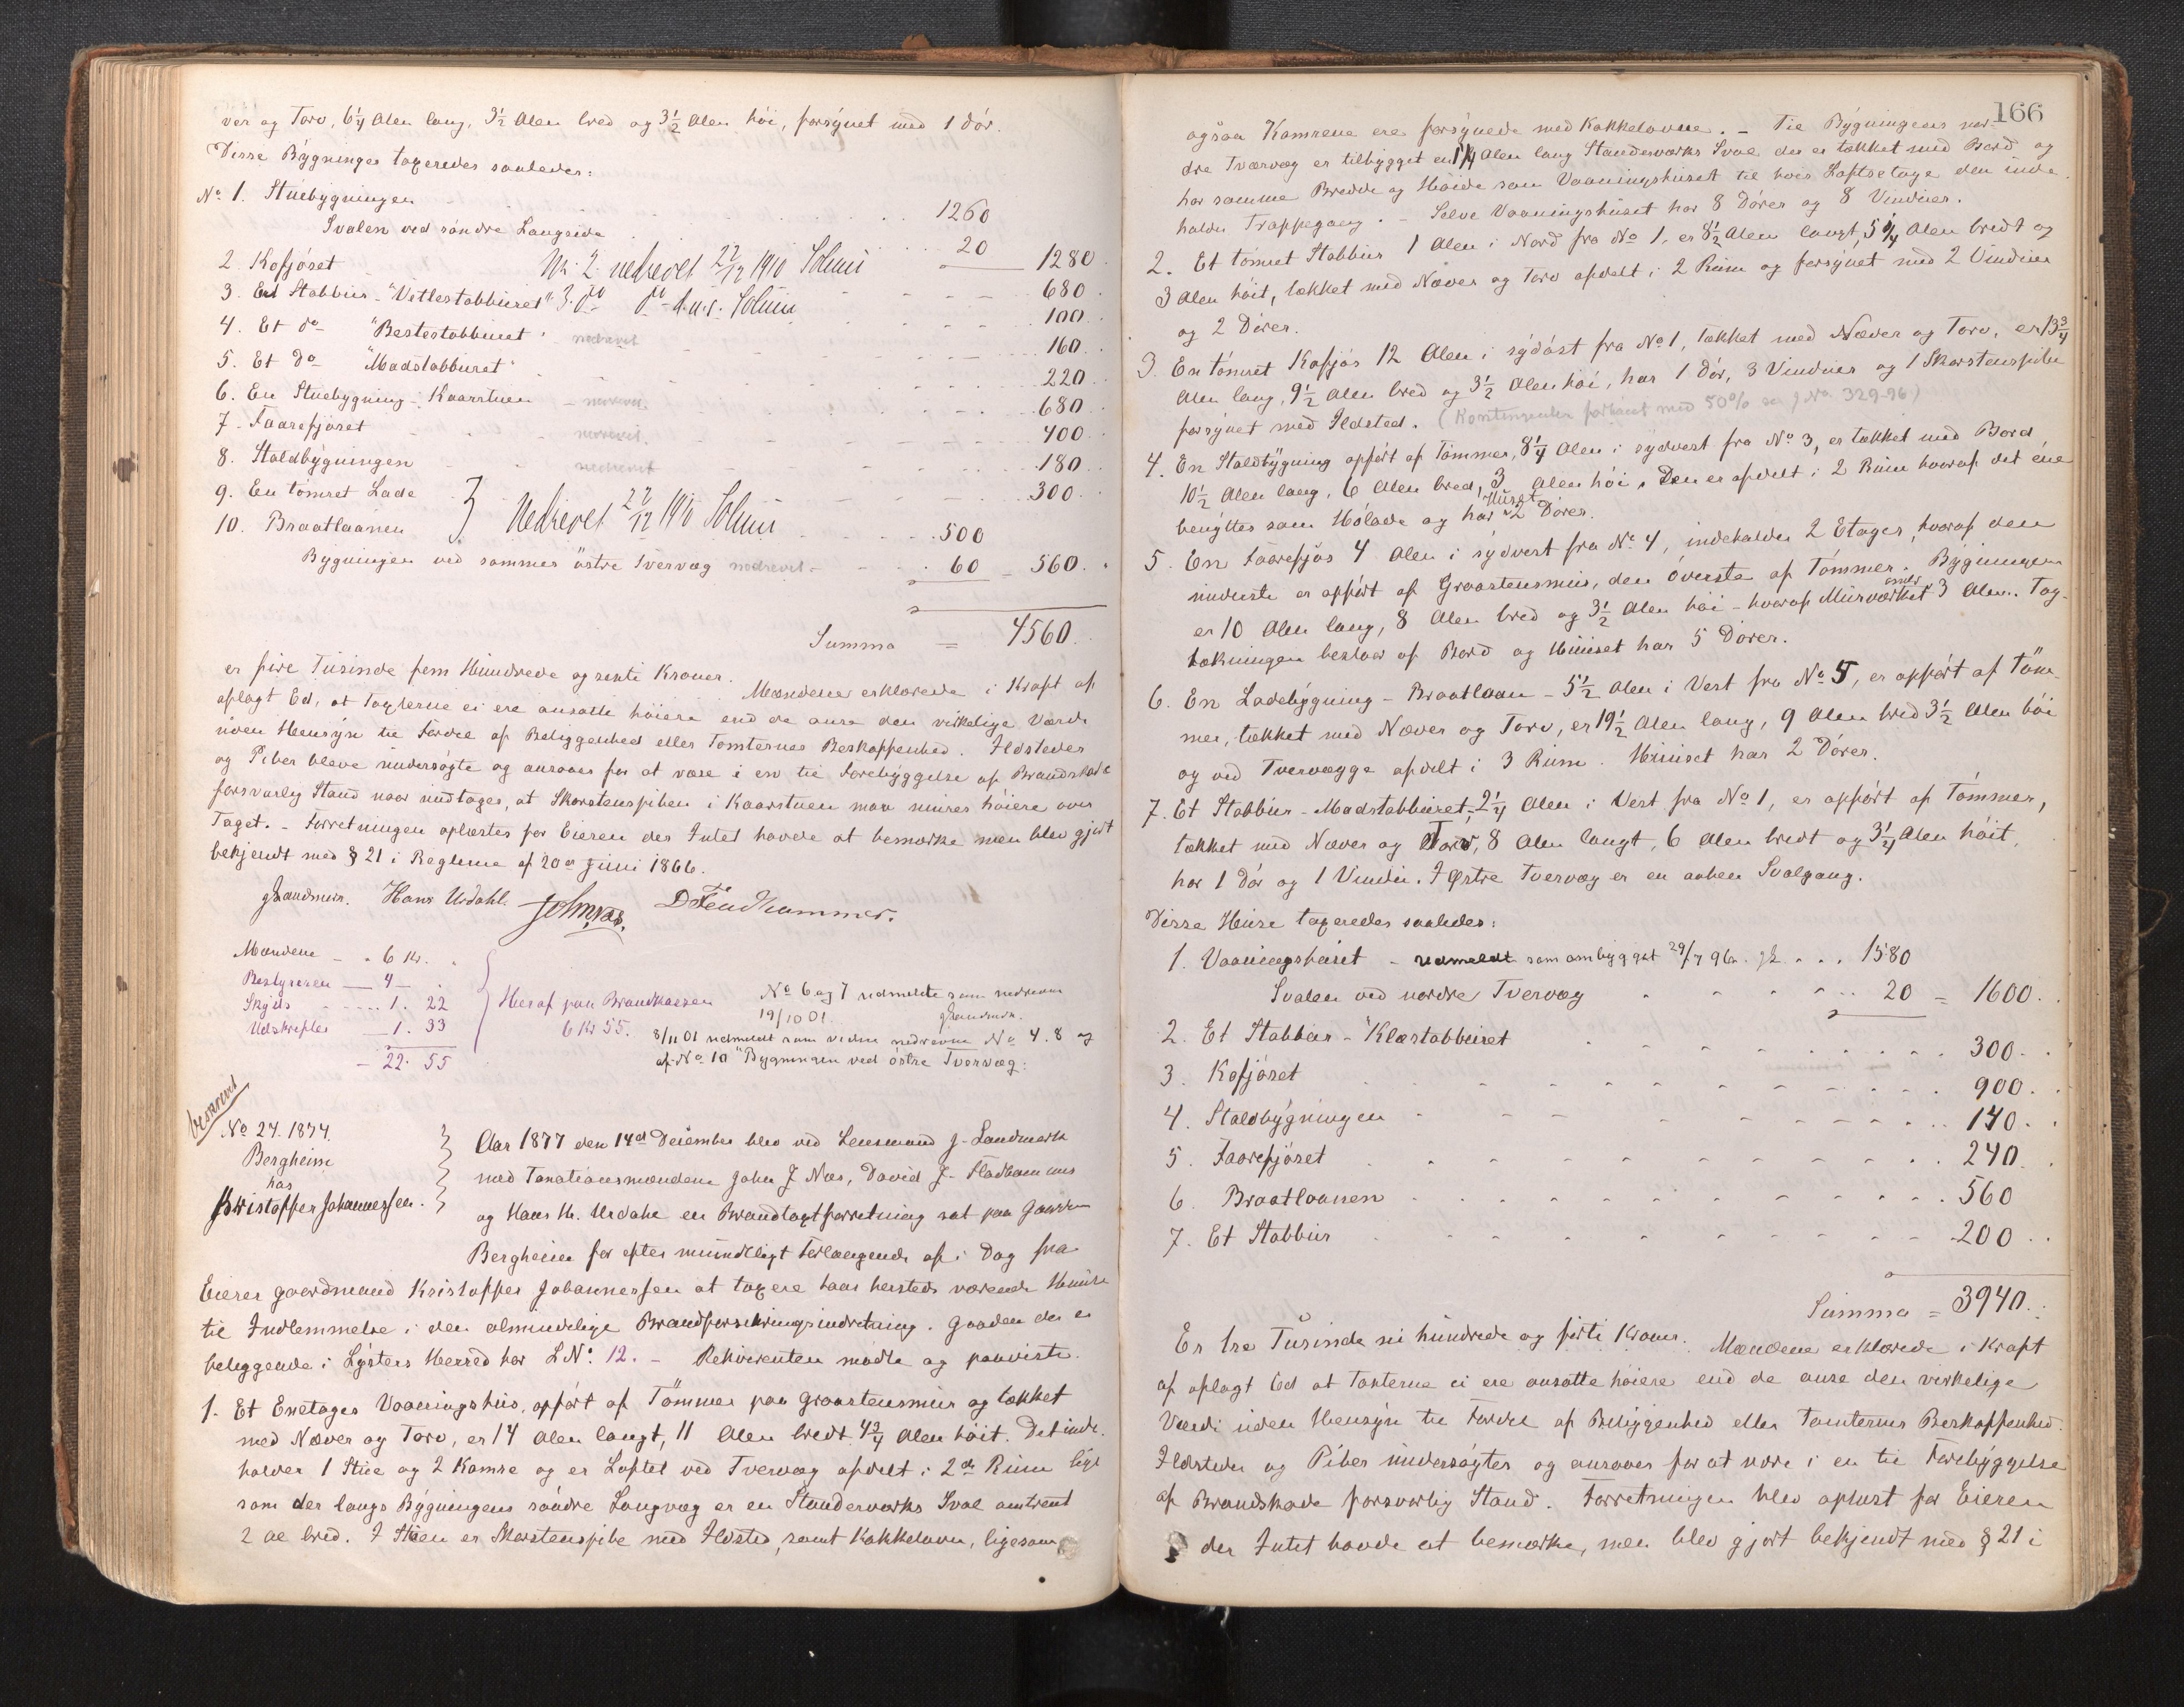 ver og Torv, 6 1/4 Alen lang, 3 1/2 Alen bred og 3 1/2 Alen høi, forsynet med 1 Dør.
Disse Bygninger taxeredes saaledes:
No 1. Stuebygningen 1260
Svalen ved søndre Langside 20 1280
2. Kofjøset No: 2 nedrevet 22/12 1910 Solum 680
3. Et Stabbur - "Vetlestabburet" 3. do do d.u.s. Solum 100
4. Et do "Bestestabburet" nedrevet 160
5. Et do "Madstabburet" 220
6. En Stuebygning - Kaarstuen nedrevet 680
7. Faarefjøset nedrevet 400
8. Staldbygningen nedrevet 180
9. En tømret Lade 300
Nedrevet 22/12 1910 Solum
10. Braatlaanen 500
Bygningen ved sammes østre Tvervæg nedrevet 60 560
Summa = 4560.
er fire Tusinde fem Hundrede og sexti Kroner. Mændene erklærede i Kraft af
aflagt Ed, at Taxterne ei ere ansatte høiere end de anse den virkelige Værdi
uden Hensyn til Fordel af Beliggenhed eller Tomternes Beskaffenhed. Ildsteder
og Piber bleve undersøgte og ansaaes for at være i en til Forebyggelse af Brandskade
forsvarlig Stand naar undtages, at Skorstenspiben i Kaarstuen maa mures høiere over
Taget. - Forretningen oplæstes for Eieren der Intet havde at bemærke men blev gjort
bekjendt med § 21 i Reglerne af 20de Juni 1866.
JLandmark. Hans Urdahl. JohnNæs. DFladhammer.
Mændene - 6 Kr.
Bestyreren - 4 -
Skyds - 1. 22
Udskrifter - 1. 33
- 22. 55
Heraf paa Brandkassen
6 Kr 55.
No 6 og 7 udmeldte som nedrevne
19/10 01. JLandmark.
8/11 01 udmeldt som videre nedrevne No 4. 8 og
af No 10 "Bygningen ved østre Tvervæg.
beskrevet
No 24. 1877.
Bergheim
hos
Kristoffer Johannessen.
Aar 1877 den 14de December blev ved Lensmand J. Landmark
med Taxationsmændene John J Næs, David J. Fladhammer
og Hans H. Urdahl en Brandtaxtforretning sat paa Gaarden
Bergheim for efter mundtligt Forlangende af i Dag fra
Eieren Gaardmand Kristoffer Johannessen at taxere hans hersteds værende Huse
til Indlemmelse i den almindelige Brandforsikringsindretning. Gaarden der er
beliggende i Lysters Herred har LNo: 12. - Rekvirenten mødte og paaviste
1. Et Enetages Vaaningshus, opført af Tømmer paa Graastensmur og tækket
med Næver og Torv, er 14 Alen langt, 11 Alen bredt 4 3/4 Alen høit. Det inde-
holder 1 Stue og 2 Kamre og er Loftet ved Tvervæg afdelt i 2de Rum lige
som der langs Bygningens søndre Langvæg er en Standerværks Sval omtrent
2 Al bred. I Stuen er Skorstenspibe med Ildsted, samt Kakkelovn, ligesom
166
ogsaa Kamrene ere forsynede med Kakkelovne. - Til Bygningens nor-
dre Tværvæg er tilbygget en 1 1/4 Alen lang Standerværks Sval der er tækket med Bord og
har samme Bredde og Høide som Vaaningshuset til hvis Loftsetage den inde-
holder Trappegang. - Selve Vaaningshuset har 8 Dører og 8 Vinduer.
2. Et tømret Stabbur 1 Alen i Nord fra No 1, er 8 1/2 Alen langt, 5 1/4 Alen bredt og
3 Alen høit, tækket med Næver og Torv afdelt i 2 Rum og forsynet med 2 Vinduer
og 2 Dører.
3. En tømret Kofjøs 12 Alen i sydøst fra No 1, tækket med Næver og Torv, er 13 3/4
Alen lang, 9 1/2 Alen bred og 3 1/2 Alen høi, har 1 Dør, 3 Vinduer og 1 Skorstenspibe
forsynet med Ildsted. (Kontingenten forhøiet med 50% se J No 329-96)
4. En Staldbygning opført af Tømmer, 8 1/4 Alen i sydvest fra No 3, er tækket med Bord
10 1/2 Alen lang, 6 Alen bred, 3 Alen høi. Den er afdelt i 2 Rum hvoraf det éne
benyttes som Hølade og har Huset 2 Dører.
5. En Faarefjøs 4 Alen i sydvest fra No 4, indeholder 2 Etager, hvoraf den
underste er opført af Graastensmur, den øverste af Tømmer. Bygningen
er 10 Alen lang, 8 Alen bred og 3 1/2 Alen høi - hvoraf Murværket 3 Alen. Tag-
tækningen bestaar af Bord og Huset har 5 Dører.
6. En Ladebygning - Braatlaan - 5 1/2 Alen i Vest fra No 5, er opført af Töm-
mer, tækket med Næver og Torv, er 19 1/2 Alen lang, 9 Alen bred 3 1/2 Alen høi
og ved Tvervægge afdelt i 3 Rum. Huset har 2 Dører.
7. Et Stabbur - Madstabburet, 2 1/4 Alen i Vest fra No 1, er opført af Tømmer,
tækket med Næver og Torv, 8 Alen langt, 6 Alen bredt og 3 1/4 Alen høit,
har 1 Dør og 1 Vindu. I Østre Tvervæg er en aaben Svalgang.
Disse Huse taxeredes saaledes:
1. Vaaningshuset - udmeldt som ombygget 29/7 96. JL. 1580
Svalen ved nordre Tvervæg 20 = 1600.
2. Et Stabbur - "Klæstabburet 300.
3. Kofjøset 900.
4. Staldbygningen 140.
5. Faarefjøset 240.
6. Braatlaanen 560
7. Et Stabbur 200
Summa = 3940.
Er tre Tusinde ni hundrede og førti Kroner. Mændene erklærede i Kraft
af aflagt Ed at Taxterne ei ere ansatte høiere end de anse den virkelige
Værdi uden Hensyn til Fordel af Beliggenhed eller Tomternes Beskaffenhed.
Ildsteder og Piber undersøgtes og ansaaes for at være i en til Forebyggelse
af Brandskade forsvarlig Stand. Forretningen blev oplæst for Eieren
der Intet havde at bemærke, men blev gjort bekjendt med § 21 i